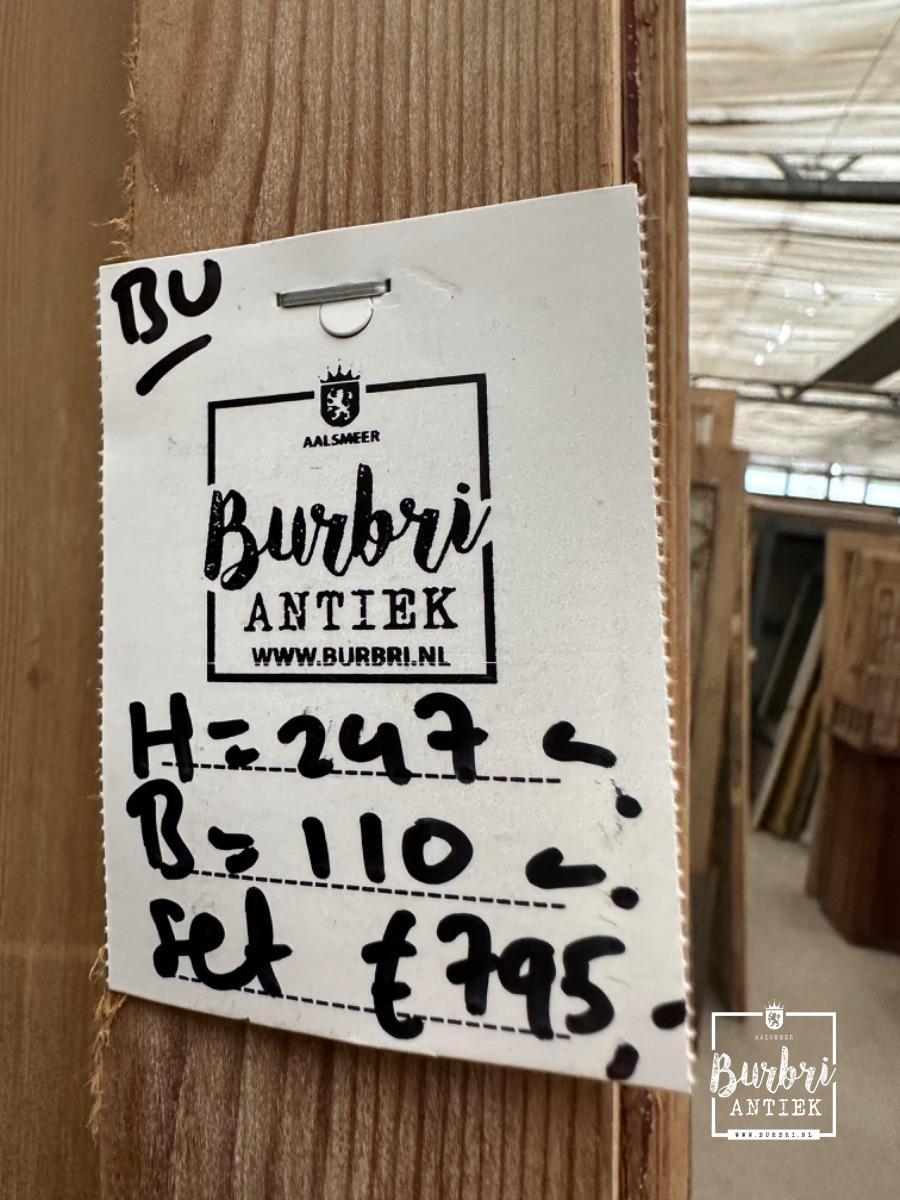 BU
AALSMEER
Burbri
ANTIEK
WWW.BURBRI.NL
H= 247 c.
B= 110 c.
set €795.-
AALSMEER
Burbri
ANTIEK
WWW.BURBRI.NL